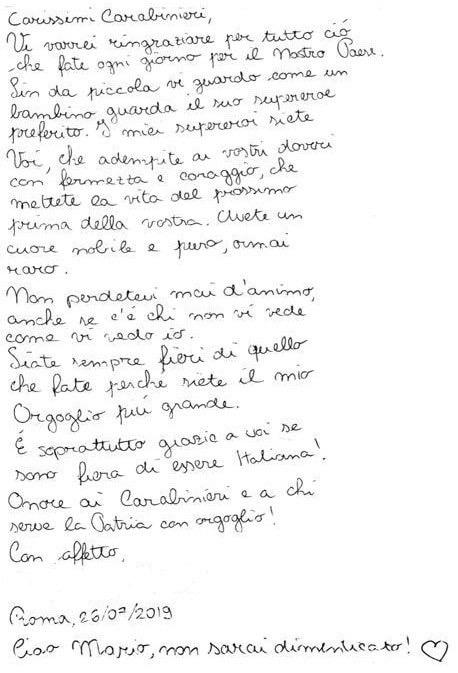 Carissimi Carabinieri,
Vi vorrei ringraziare per tutto ció
che fate ogni giorno per il Nostro Paese.
Sin da piccola vi guardo come un
bambino guarda il suo supereroe
preferito. I miei supereroi siete
Voi, che adempite ai vostri doveri
con fermezza e coraggio, che
mettete la vita del prossimo
prima della vostra. Avete un
cuore nobile e puro, ormai
raro.
Non perdetevi mai d'animo,
anche se c'è chi non vi vede
come vi vedo io.
Siate sempre fieri di quello
che fate perché siete il mio
Orgoglio più grande.
É soprattutto grazie a voi se
sono fiera di essere Italiana!
Onore ai Carabinieri e a chi
serve la Patria con orgoglio!
Con affetto,
Roma, 26/07/2019
Ciao Mario, non sarai dimenticato! ♡